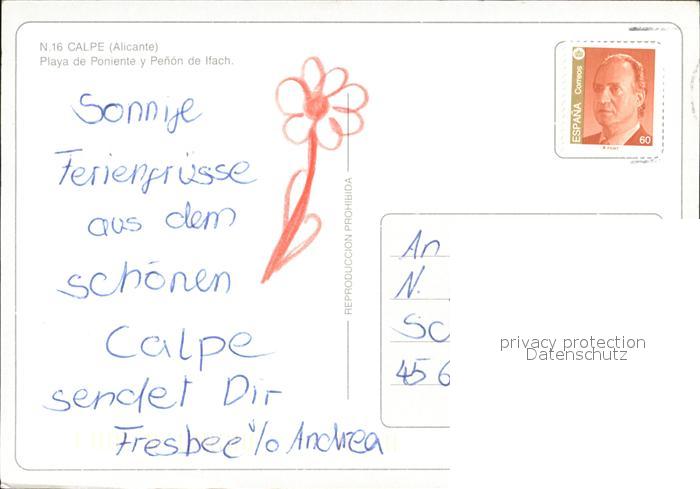 N.16 CALPE (Alicante)
Playa de Poniente y Peñón de Ifach.
ESPAÑA Correos
60
Sonnige
Feriengrüsse
aus dem
schönen
Calpe
sendet Dir
Fresbee v/o Andrea
REPRODUCCION PROHIBIDA
An
N.
Sc
456
privacy protection
Datenschutz